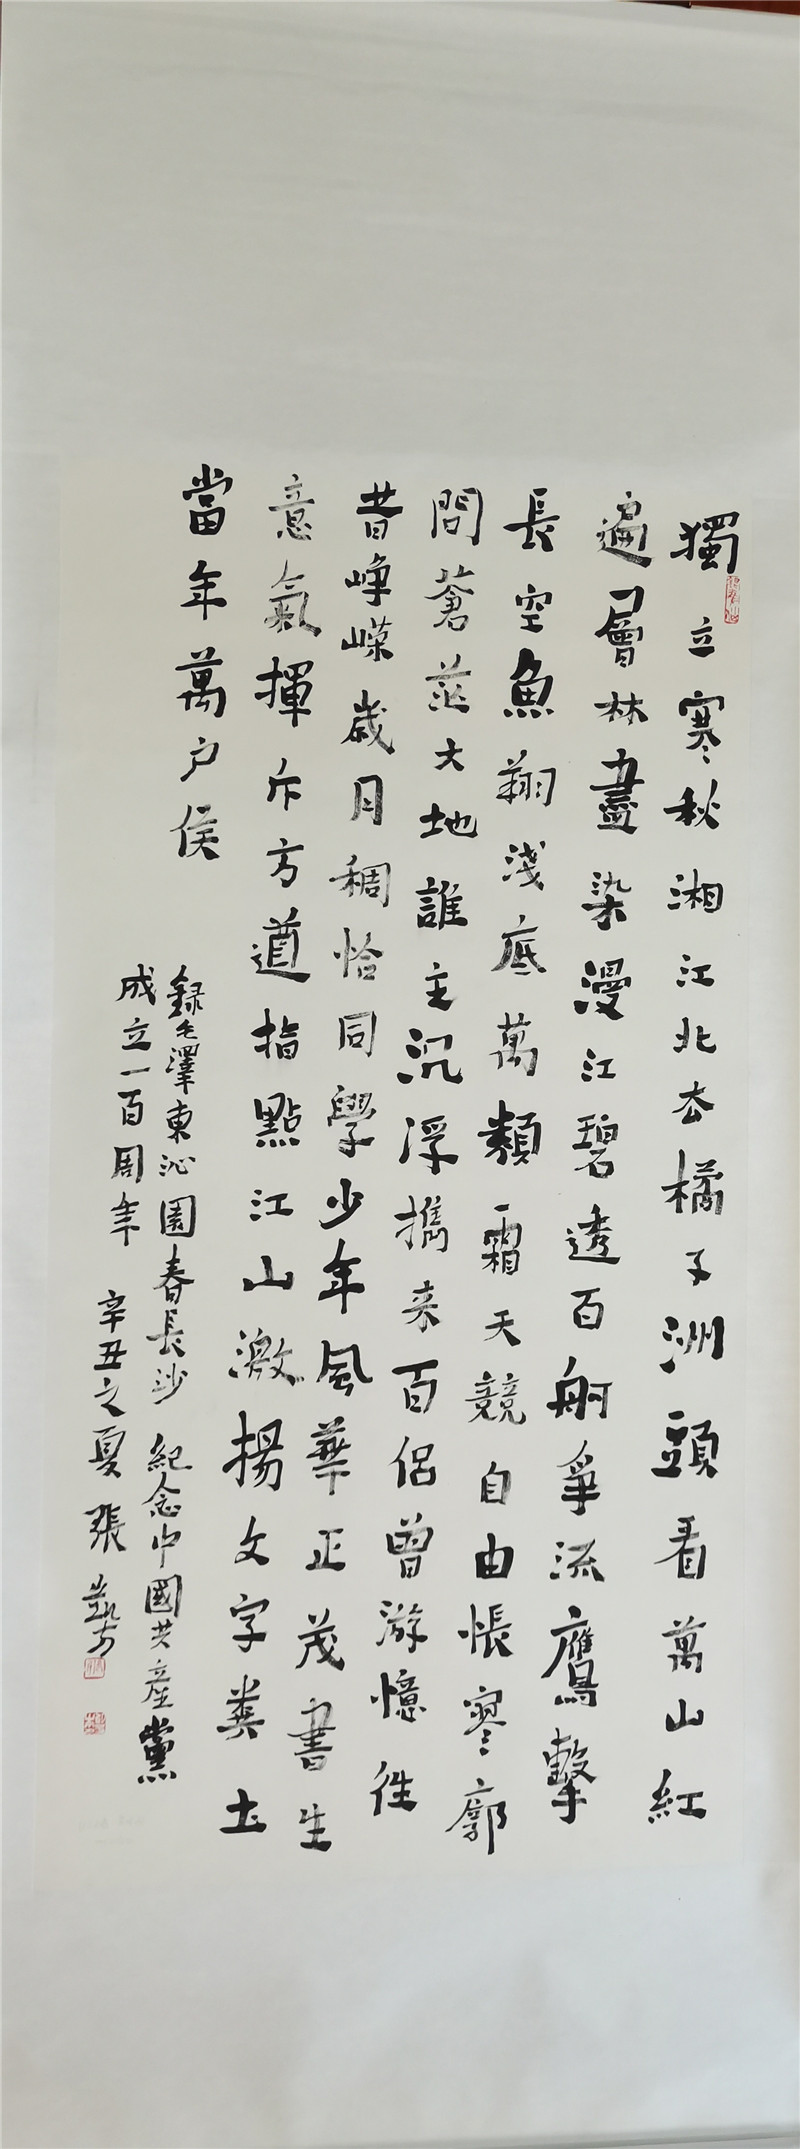 獨立寒秋湘江北去橘子洲頭看萬山紅
遍層林盡染漫江碧透百舸爭流鷹擊
長空魚翔淺底萬類霜天競自由悵寥廓
問蒼茫大地誰主沉浮攜来百侶曾游憶往
昔崢嶸歲月稠恰同學少年風華正茂書生
意氣揮斥方遒指點江山激揚文字糞土
當年萬户侯
録毛澤東沁園春長沙 紀念中國共產黨
成立一百周年 辛丑之夏 張